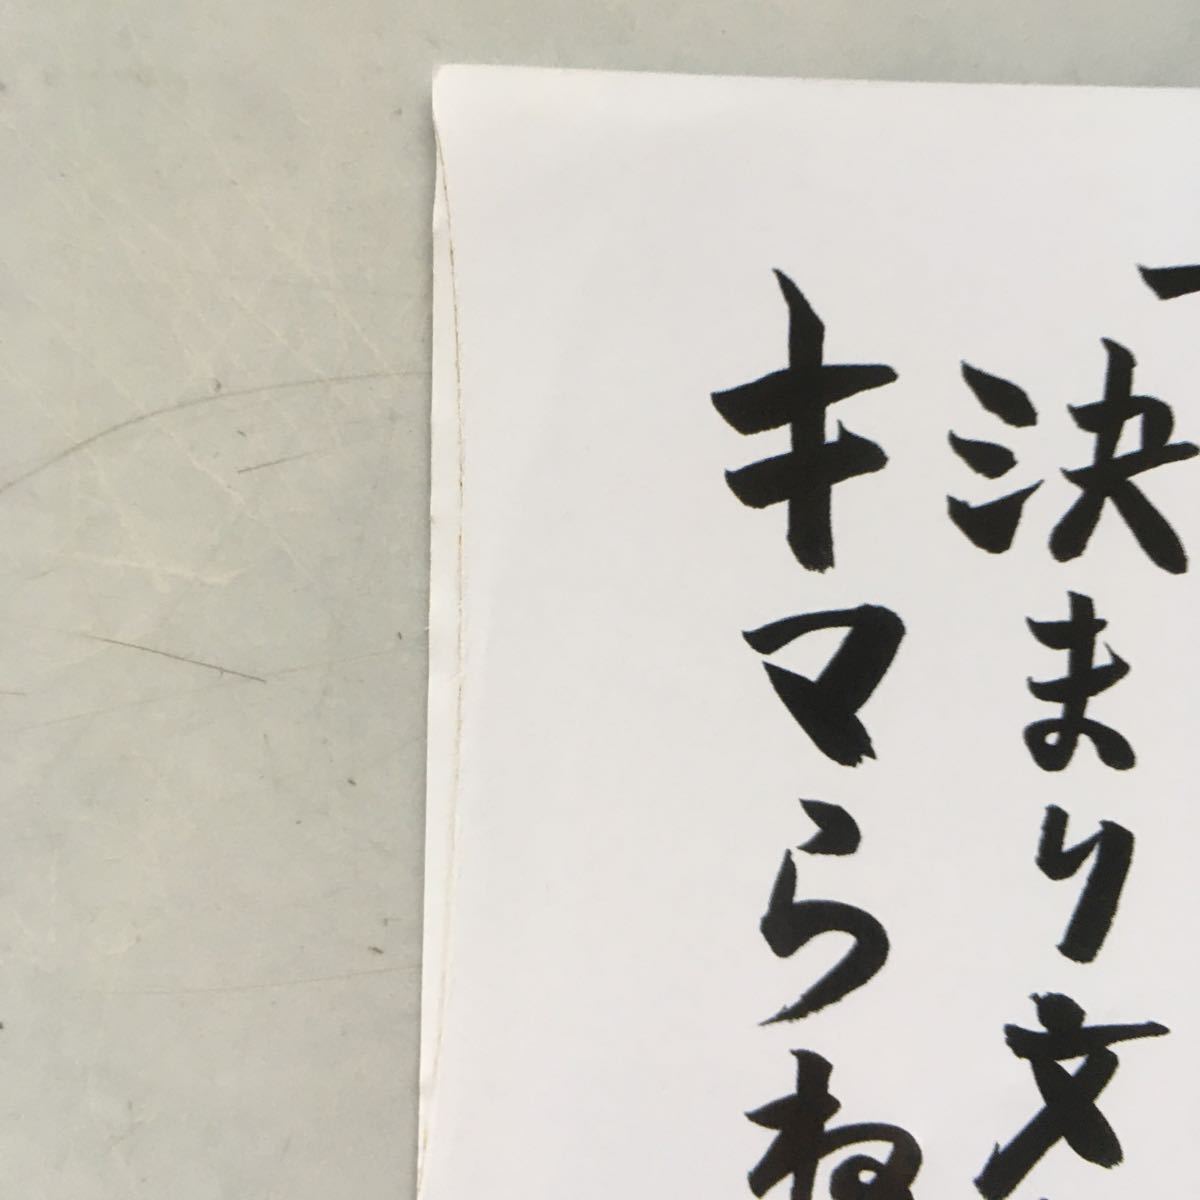 決まり文
キマらね